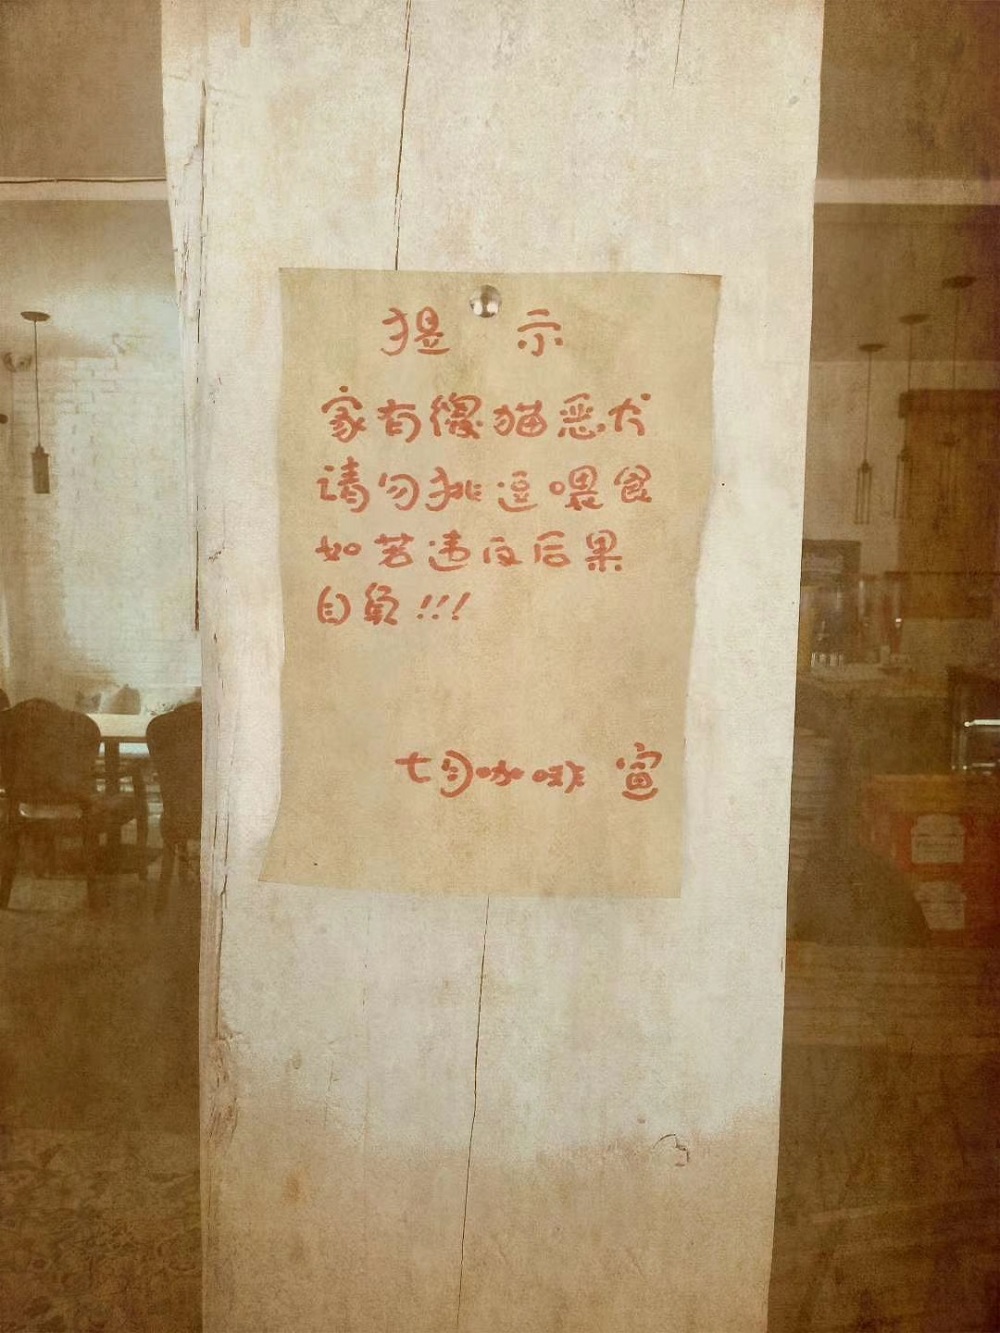 提 示
家有傻猫恶犬
请勿挑逗喂食
如若违反后果
自负!!!
七月咖啡 宣